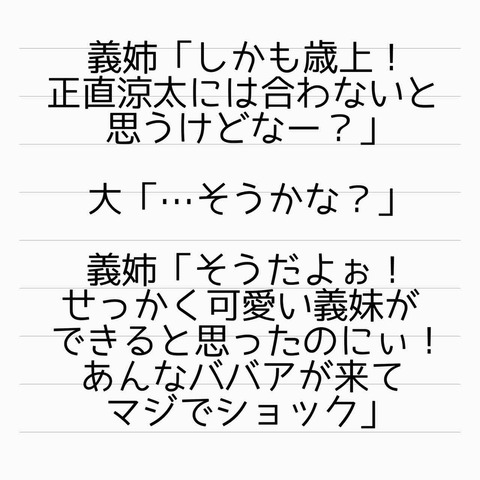 義姉「しかも歳上！
正直涼太には合わないと
思うけどなー？」
大「…そうかな？」
義姉「そうだよぉ！
せっかく可愛い義妹が
できると思ったのにぃ！
あんなババアが来て
マジでショック」